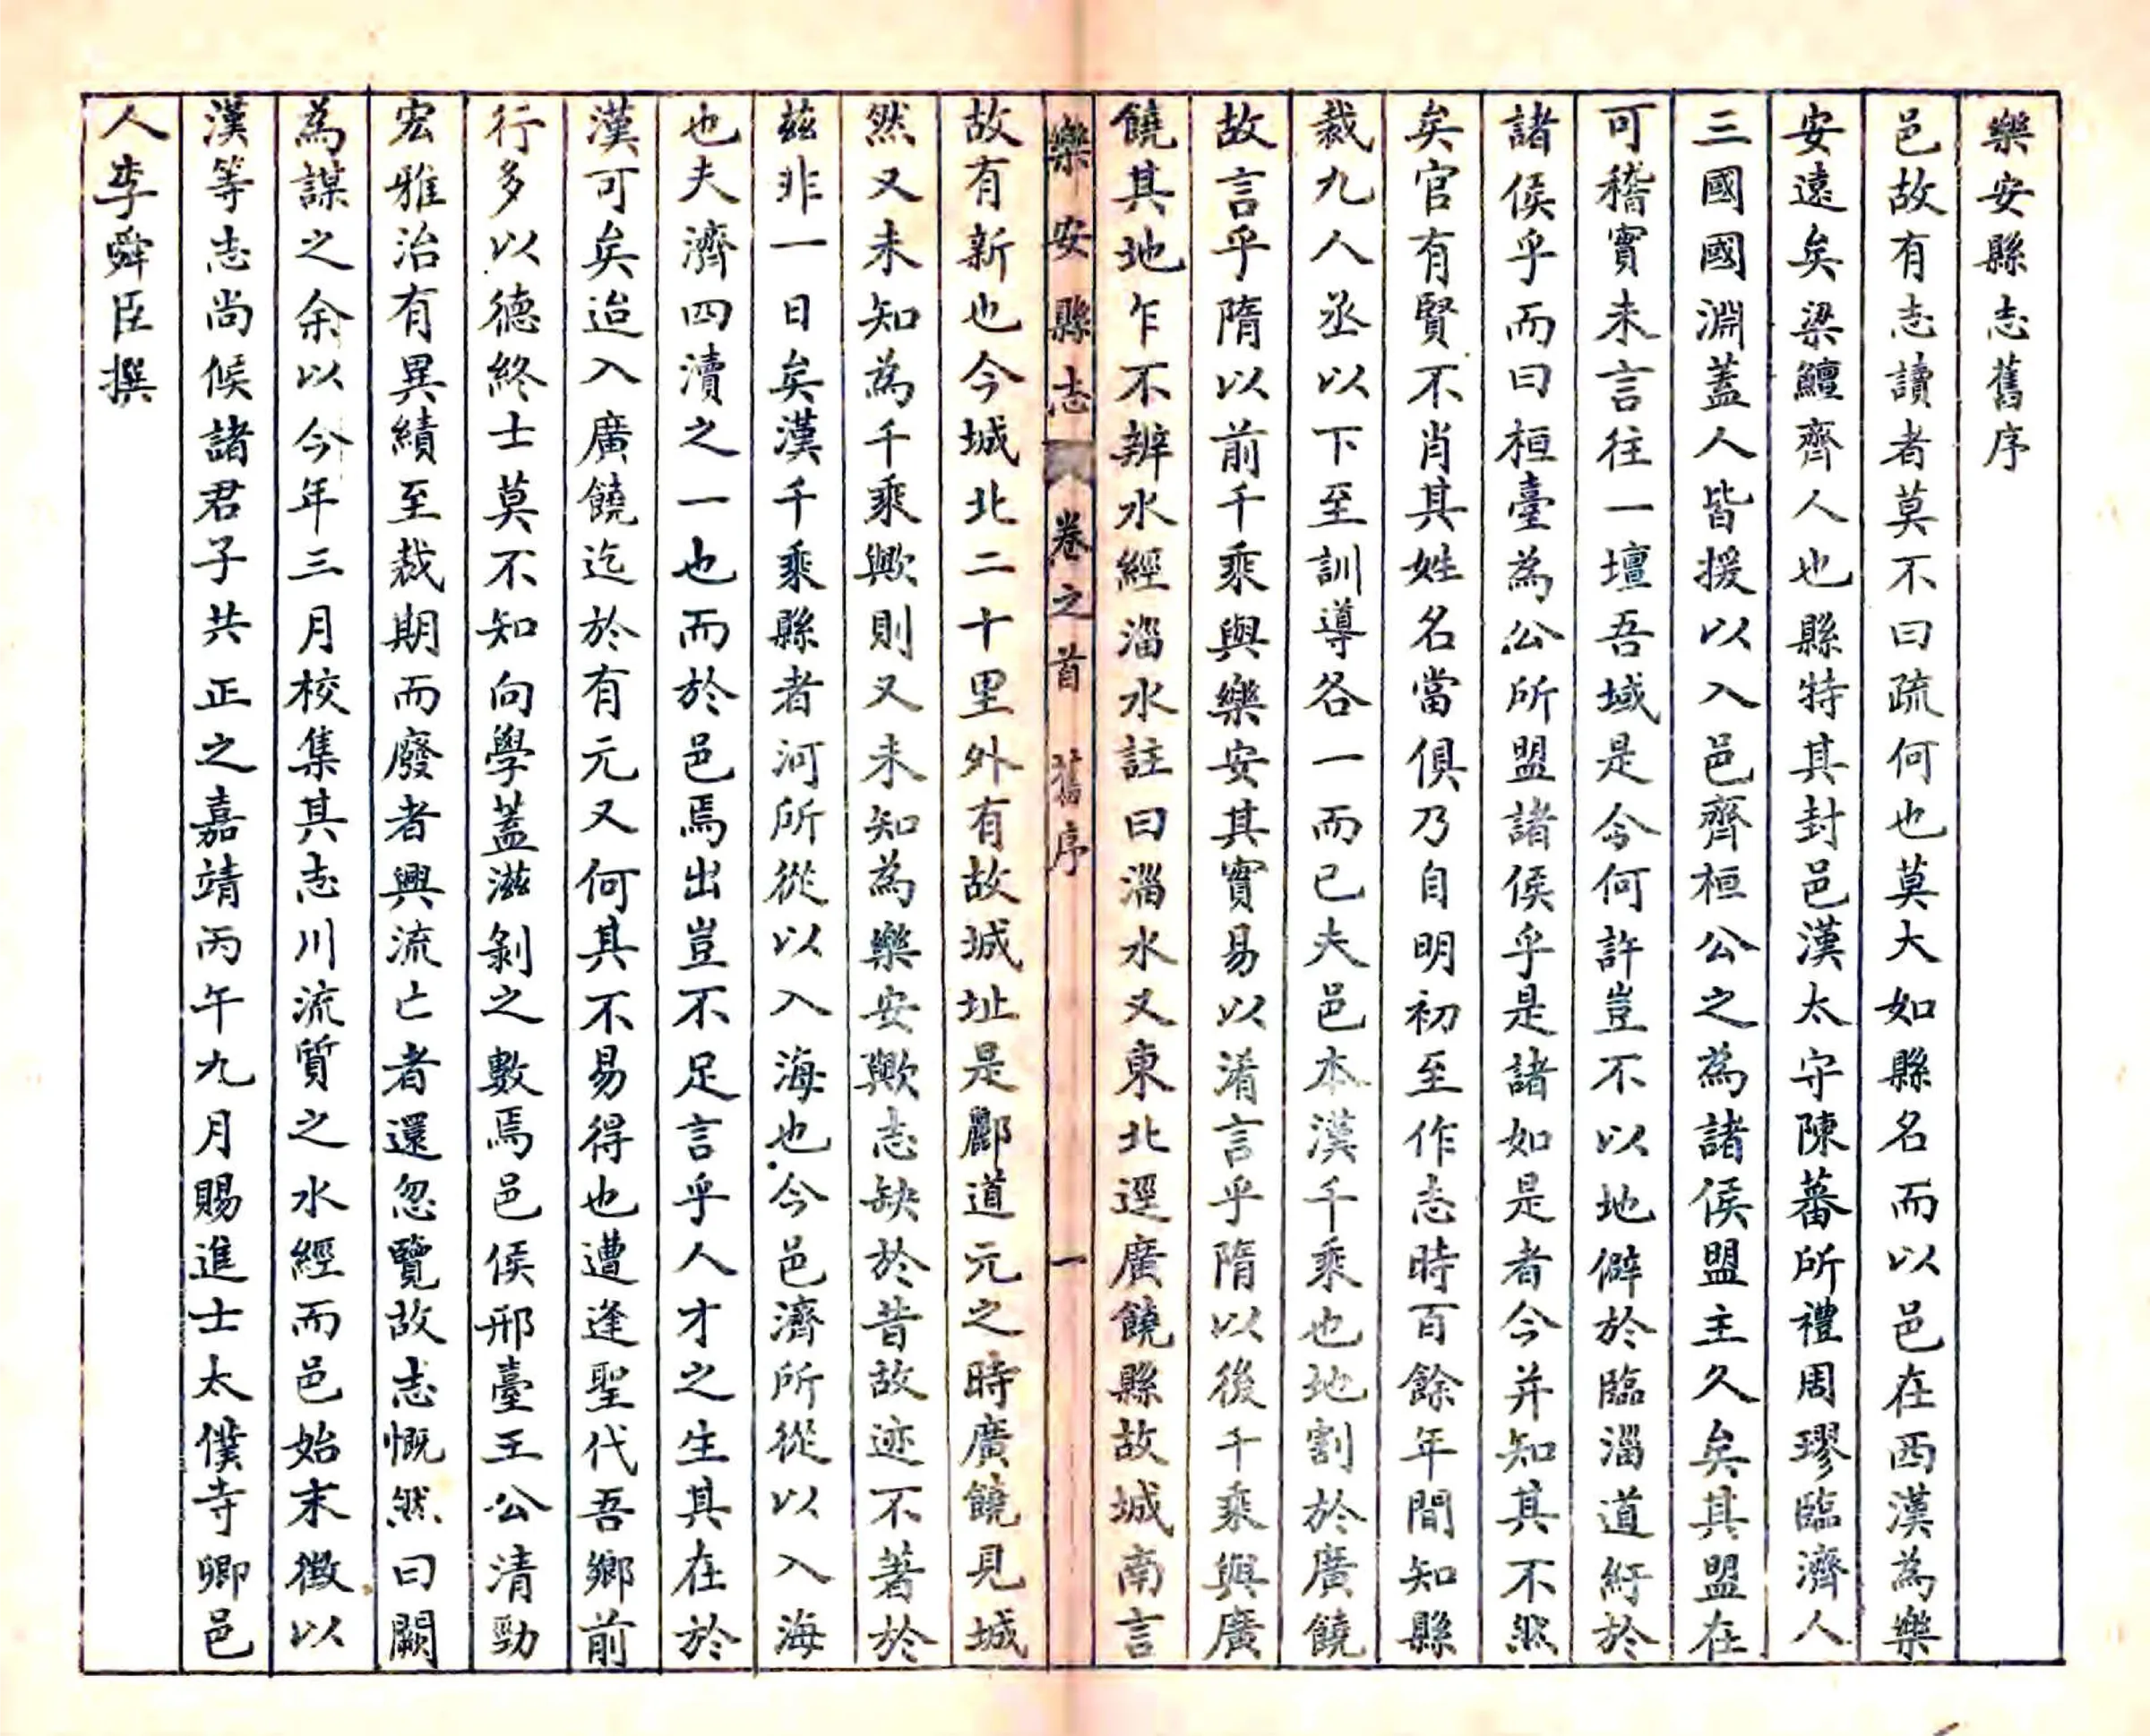 樂安縣志舊序
邑故有志讀者莫不曰疏何也莫大如縣名而以邑在西漢為樂
安遠矣梁鱣齊人也縣特其封邑漢太守陳蕃所禮周璆臨濟人
三國國淵蓋人皆援以入邑齊桓公之為諸侯盟主久矣其盟在
可稽實未言往一壇吾域是今何許豈不以地僻於臨淄道紆於
諸侯乎而曰桓臺為公所盟諸侯乎是諸如是者今并知其不然
矣官有賢不肖其姓名當俱乃自明初至作志時百餘年間知縣
裁九人丞以下下至訓導各一而已夫邑本漢千乘也地割於廣饒
故言乎隋以前千乘與樂安其實易以淆言乎隋以後千乘與廣
饒其地乍不辨水經淄水註曰淄水又東北逕廣饒縣故城南言
樂安縣志 卷之首 舊序 一
故有新也今城北二十里外有故城址是酈道元之時廣饒見城
然又未知為千乘歟則又未知為樂安歟志缺於昔故迹不著於
茲非一日矣漢千乘縣者河所從以入海也今邑濟所從以入海
也夫濟四瀆之一也而於邑焉出豈不足言乎人才之生其在於
漢可矣迨入廣饒迄於有元又何其不易得也遭逢聖代吾鄉前
行多以德終士莫不知向學蓋滋剝之數焉邑侯邢臺王公清勁
宏雅治有異績至裁期而廢者興流亡者還忽覽故志慨然曰闕
為謀之余以今年三月校集其志川流質之水經而邑始末徵以
漢等志尚候諸君子共正之嘉靖丙午九月賜進士太僕寺卿邑
人李舜臣撰